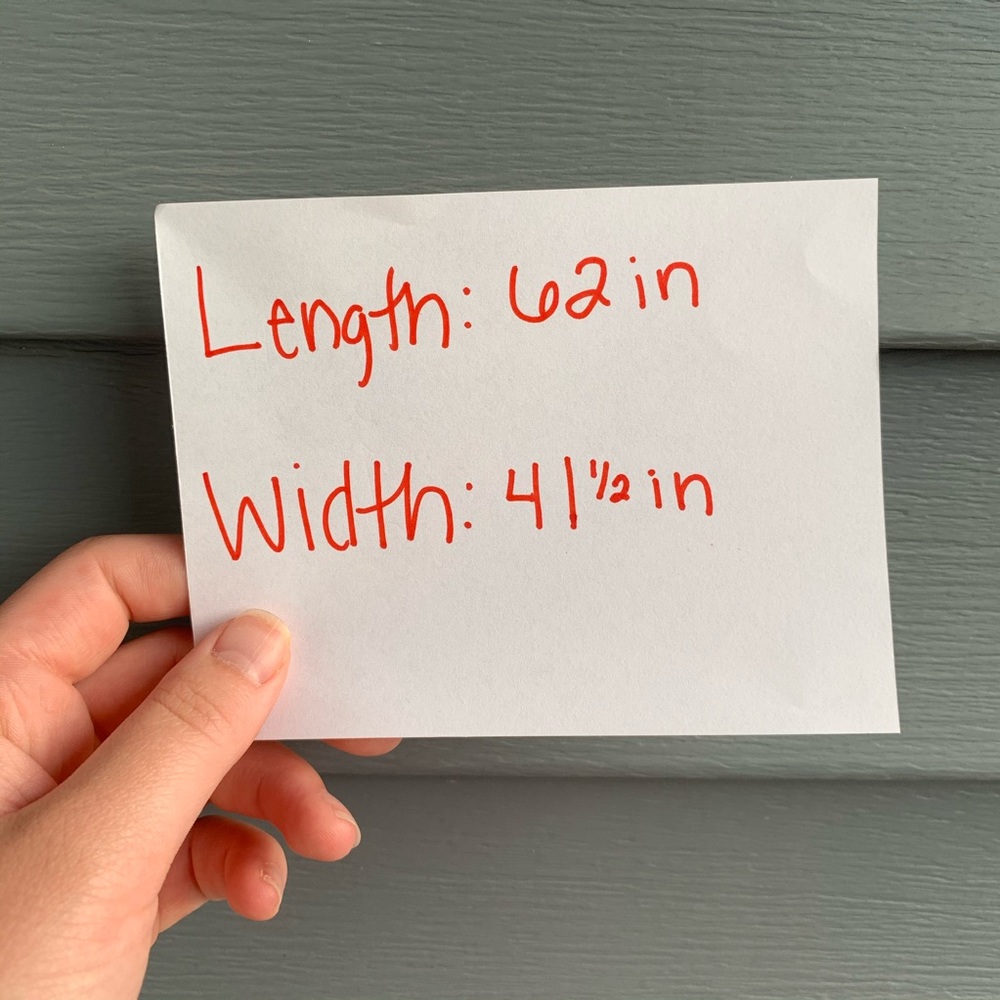 Length: 62 in
Width: 41 1/2 in